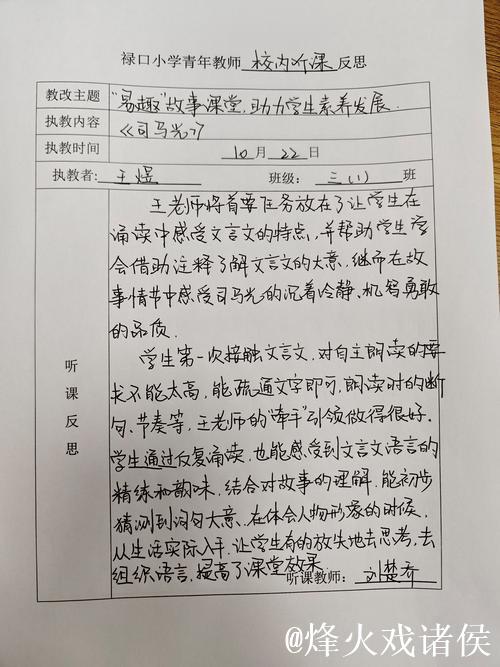 禄口小学青年教师 校内听课 反思
教改主题 "易趣"故事课堂,助力学生素养发展.
执教内容 《司马光》
执教时间 10月22日
执教者: 王煜 班级: 三(1) 班
王老师将首要任务放在了让学生在
诵读中感受文言文的特点,并帮助学生学
会借助注释了解文言文的大意,继而在故
事情节中感受司马光的沉着冷静、机智勇敢
的品质.
学生第一次接触文言文,对自主朗读的要
求不能太高,能疏通文字即可,朗读时的断
句、节奏等,王老师的"牵手"引领做得很好.
学生通过反复诵读,也能感受到文言文语言的
精练和韵味,结合对故事的理解,能初步
猜测到词句大意、在体会人物形象的时候,
从生活实际入手,让学生有的放失地去思考,去
组织语言,提高了课堂效果.
听课反思
听课教师: 刘楚乔
@烽火戏诸侯